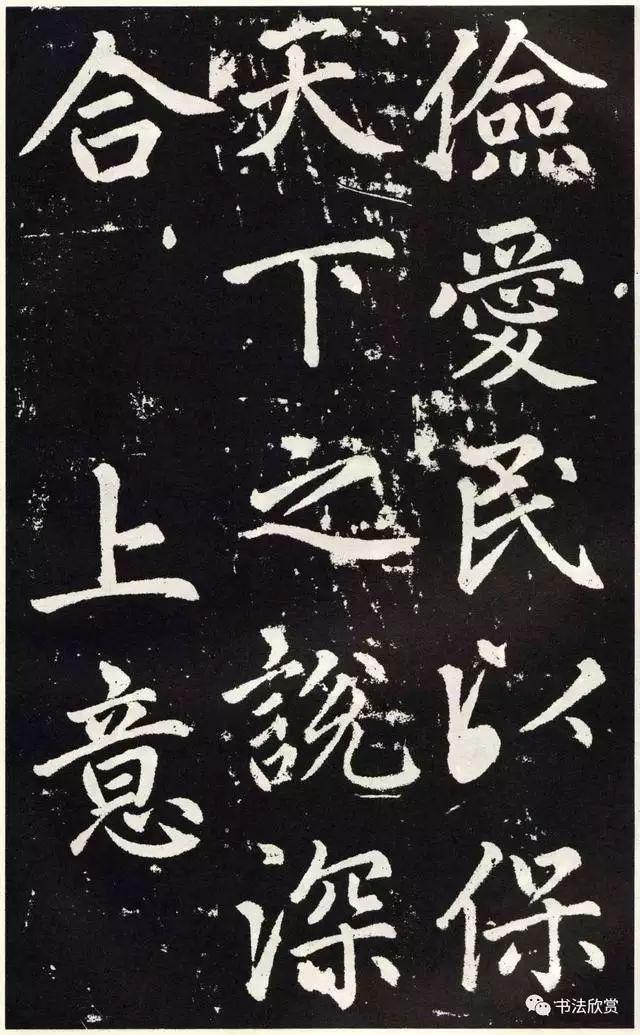 儉愛民以保
天下之說深
合 上意
书法欣赏